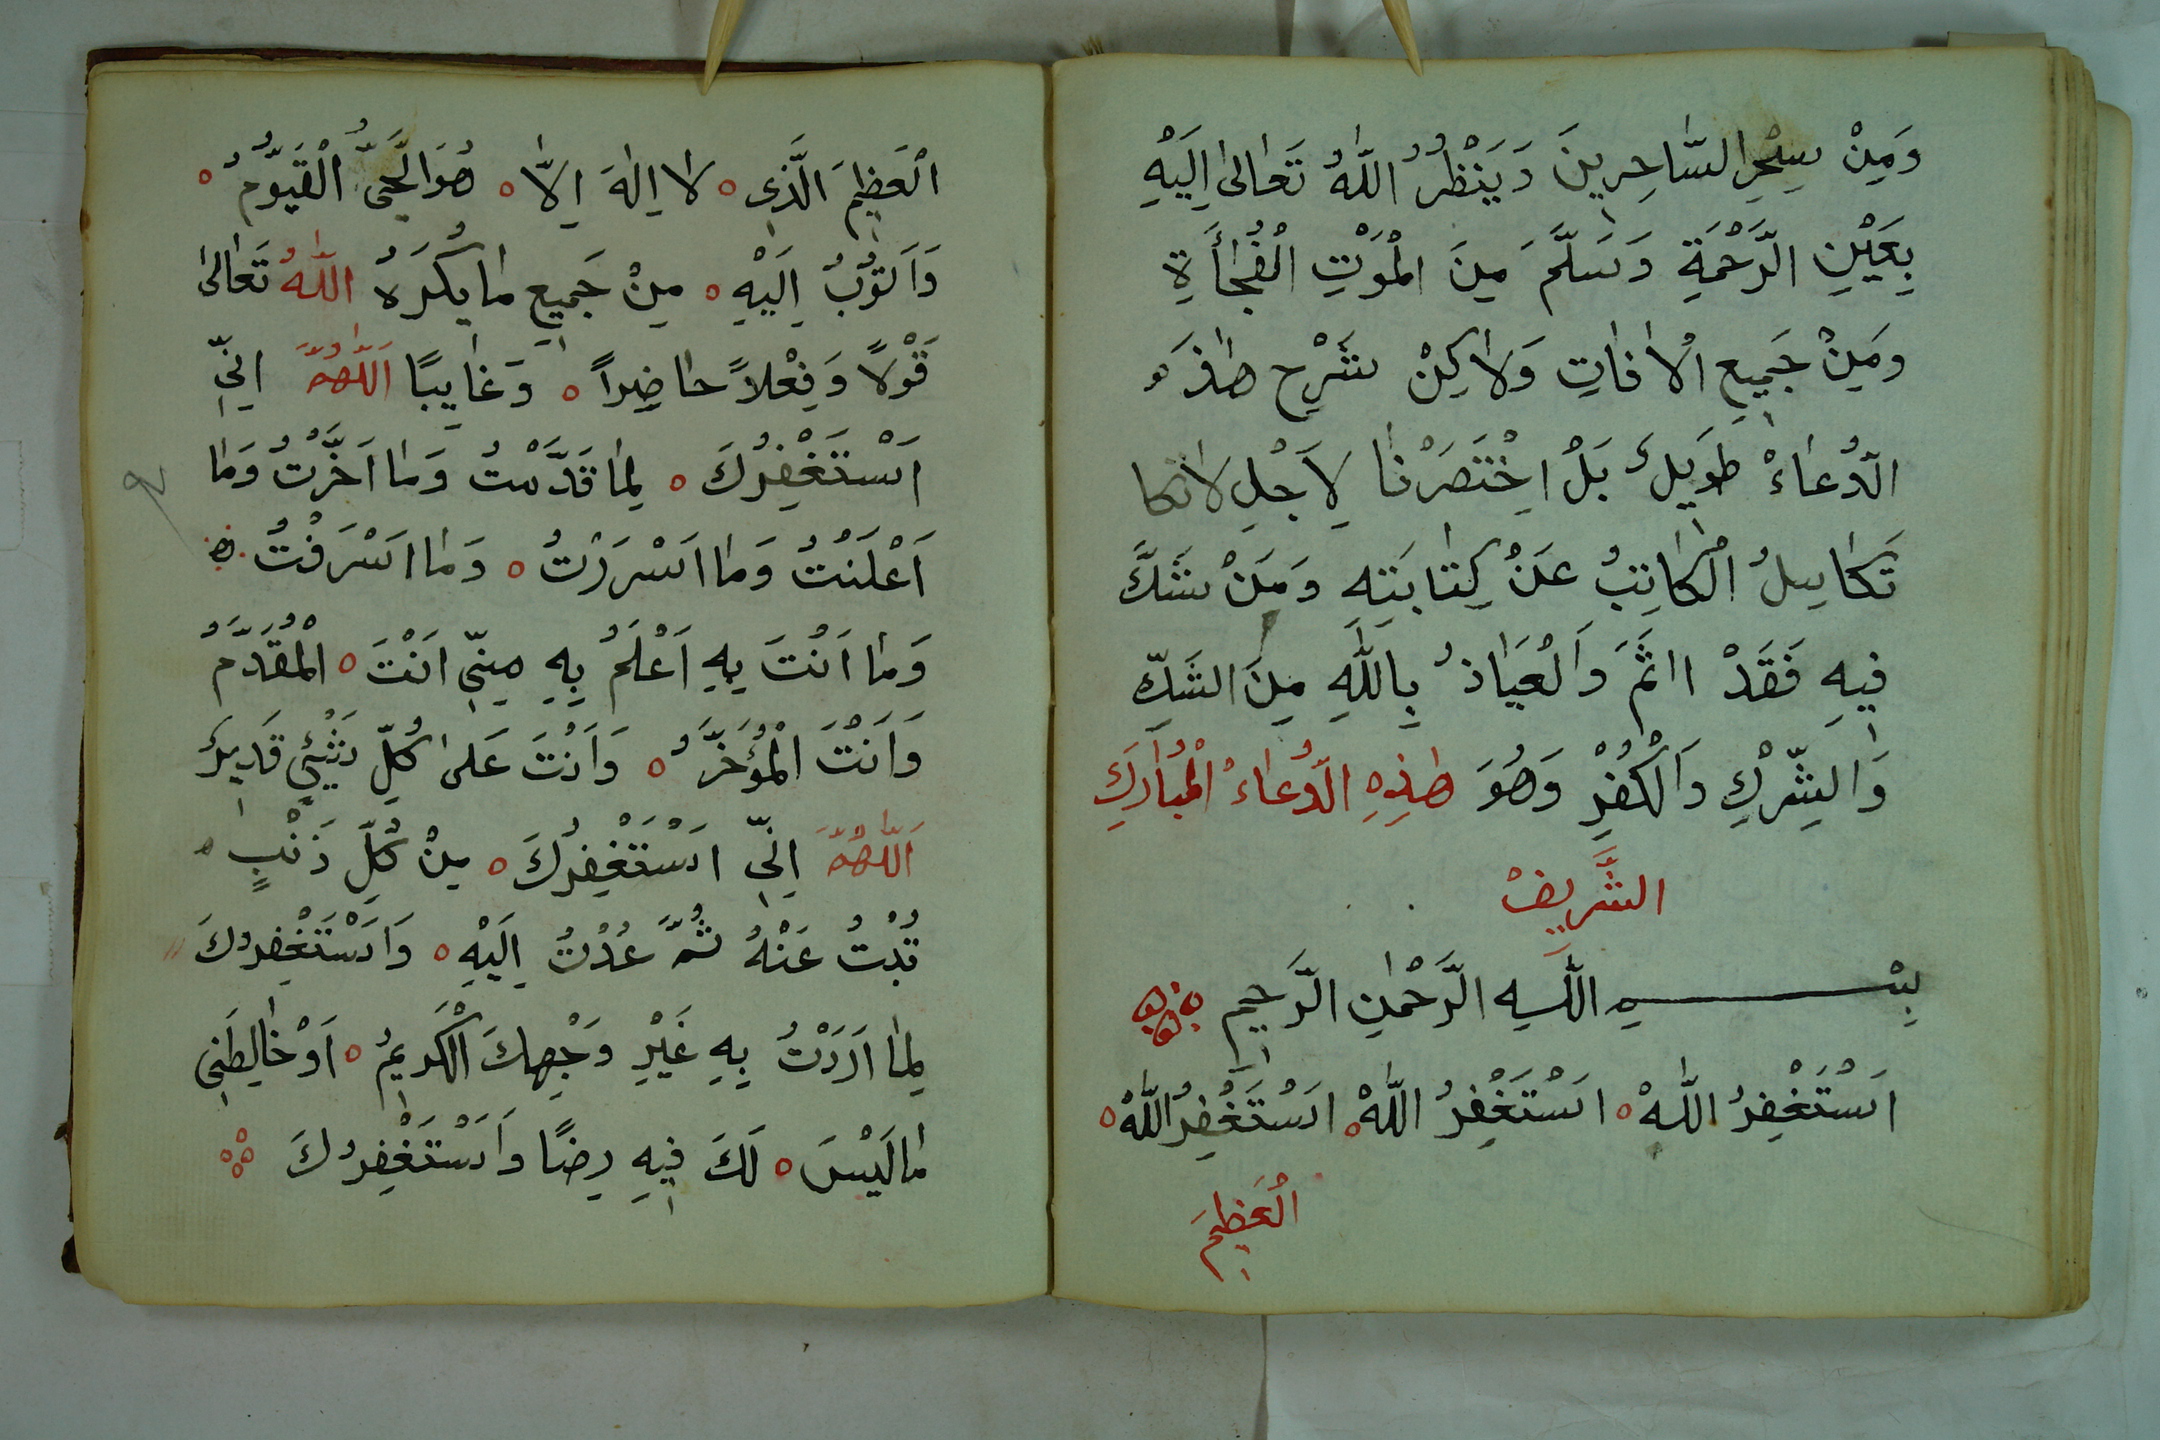 وَمِنْ سِحْرِ السَّاحِرِينَ وَيَنْظُرُ اللّٰهُ تَعَالٰى اِلَيْهِ
بِعَيْنِ الرَّحْمَةِ وَسَلَّمَ مِنَ الْمَوْتِ الْفُجْأَةِ
وَمِنْ جَمِيعِ الْاٰفَاتِ وَلَاكِنْ شَرْحِ هٰذَهِ
الدُّعَاءْ طَوِيلٌ بَلْ اِخْتَصَرْنَا لِاَجْلِ لَا تكا
تَكَاسِلُ الْكَاتِبُ عَنْ كِتَابَتِهِ وَمَنْ شَكَّ
فِيهِ فَقَدْ ااثَمَ وَالْعَيَاذُ بِاللّٰهِ مِنَ الشَكِّ
وَالشِّرْكِ وَالْكُفْرِ وَهُوَ هٰذِهِ الدُّعَاءْ الْمُبَارَكِ
الشَّرِيفْ
بِسْــــــمِ اللّٰهِ الرَّحْمٰنِ الرَّحِيمِ
اَسْتَغْفِرُ اللّٰهْ ه اَسْتَغْفِرُ اللّٰهْ ه اَسْتَغْفِرُ اللّٰهْ ه
الْعَظِيمَ
الْعَظِيمَ الَّذِى ه لَا اِلٰهَ اِلَّا ه هُوَ الْحَىُّ الْقَيُّومُ ه
وَاَتُوبُ اِلَيْهِ ه مِنْ جَمِيعِ مَا يَكْرَهُ اللّٰهُ تَعَالٰى
قَوْلًا وَفِعْلًا حَاضِراً ه وَغَايِبًا اَللّٰهُمَّ اِنِّى
اَسْتَغْفِرُكَ ه لِمَا قَدَّمْتُ وَمَا اَخَّرْتُ وَمَا
اَعْلَنْتُ وَمَا اَسْرَرْتُ ه وَمَا اَسْرَفْتُ ه
وَمَا اَنْتَ بِهِ اَعْلَمُ بِهِ مِنِّى اَنْتَ ه الْمُقَدَّمُ
وَاَنْتَ الْمُؤَخَّرُ ه وَاَنْتَ عَلٰى كُلِّ شَيْئٍ قَدِيرٌ
اَللّٰهُمَّ اِنِّى اَسْتَغْفِرُكَ ه مِنْ كُلِّ ذَنْبٍ ه
تُبْتُ عَنْهُ ثُمَّ عُدْتُ اِلَيْهِ ه وَاَسْتَغْفِرُكَ
لِمَا اَرَدْتُ بِهِ غَيْرِ وَجْهِكَ الْكَرِيمُ ه اَوْ خَالِطَنِى
مَا لَيْسَ ه لَكَ فِيهِ رِضًا وَاَسْتَغْفِرُكَ